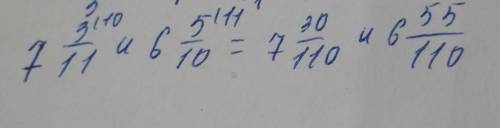 7 3/11 ⁽¹⁰ и 6 5/10 ⁽¹¹ = 7 30/110 и 6 55/110